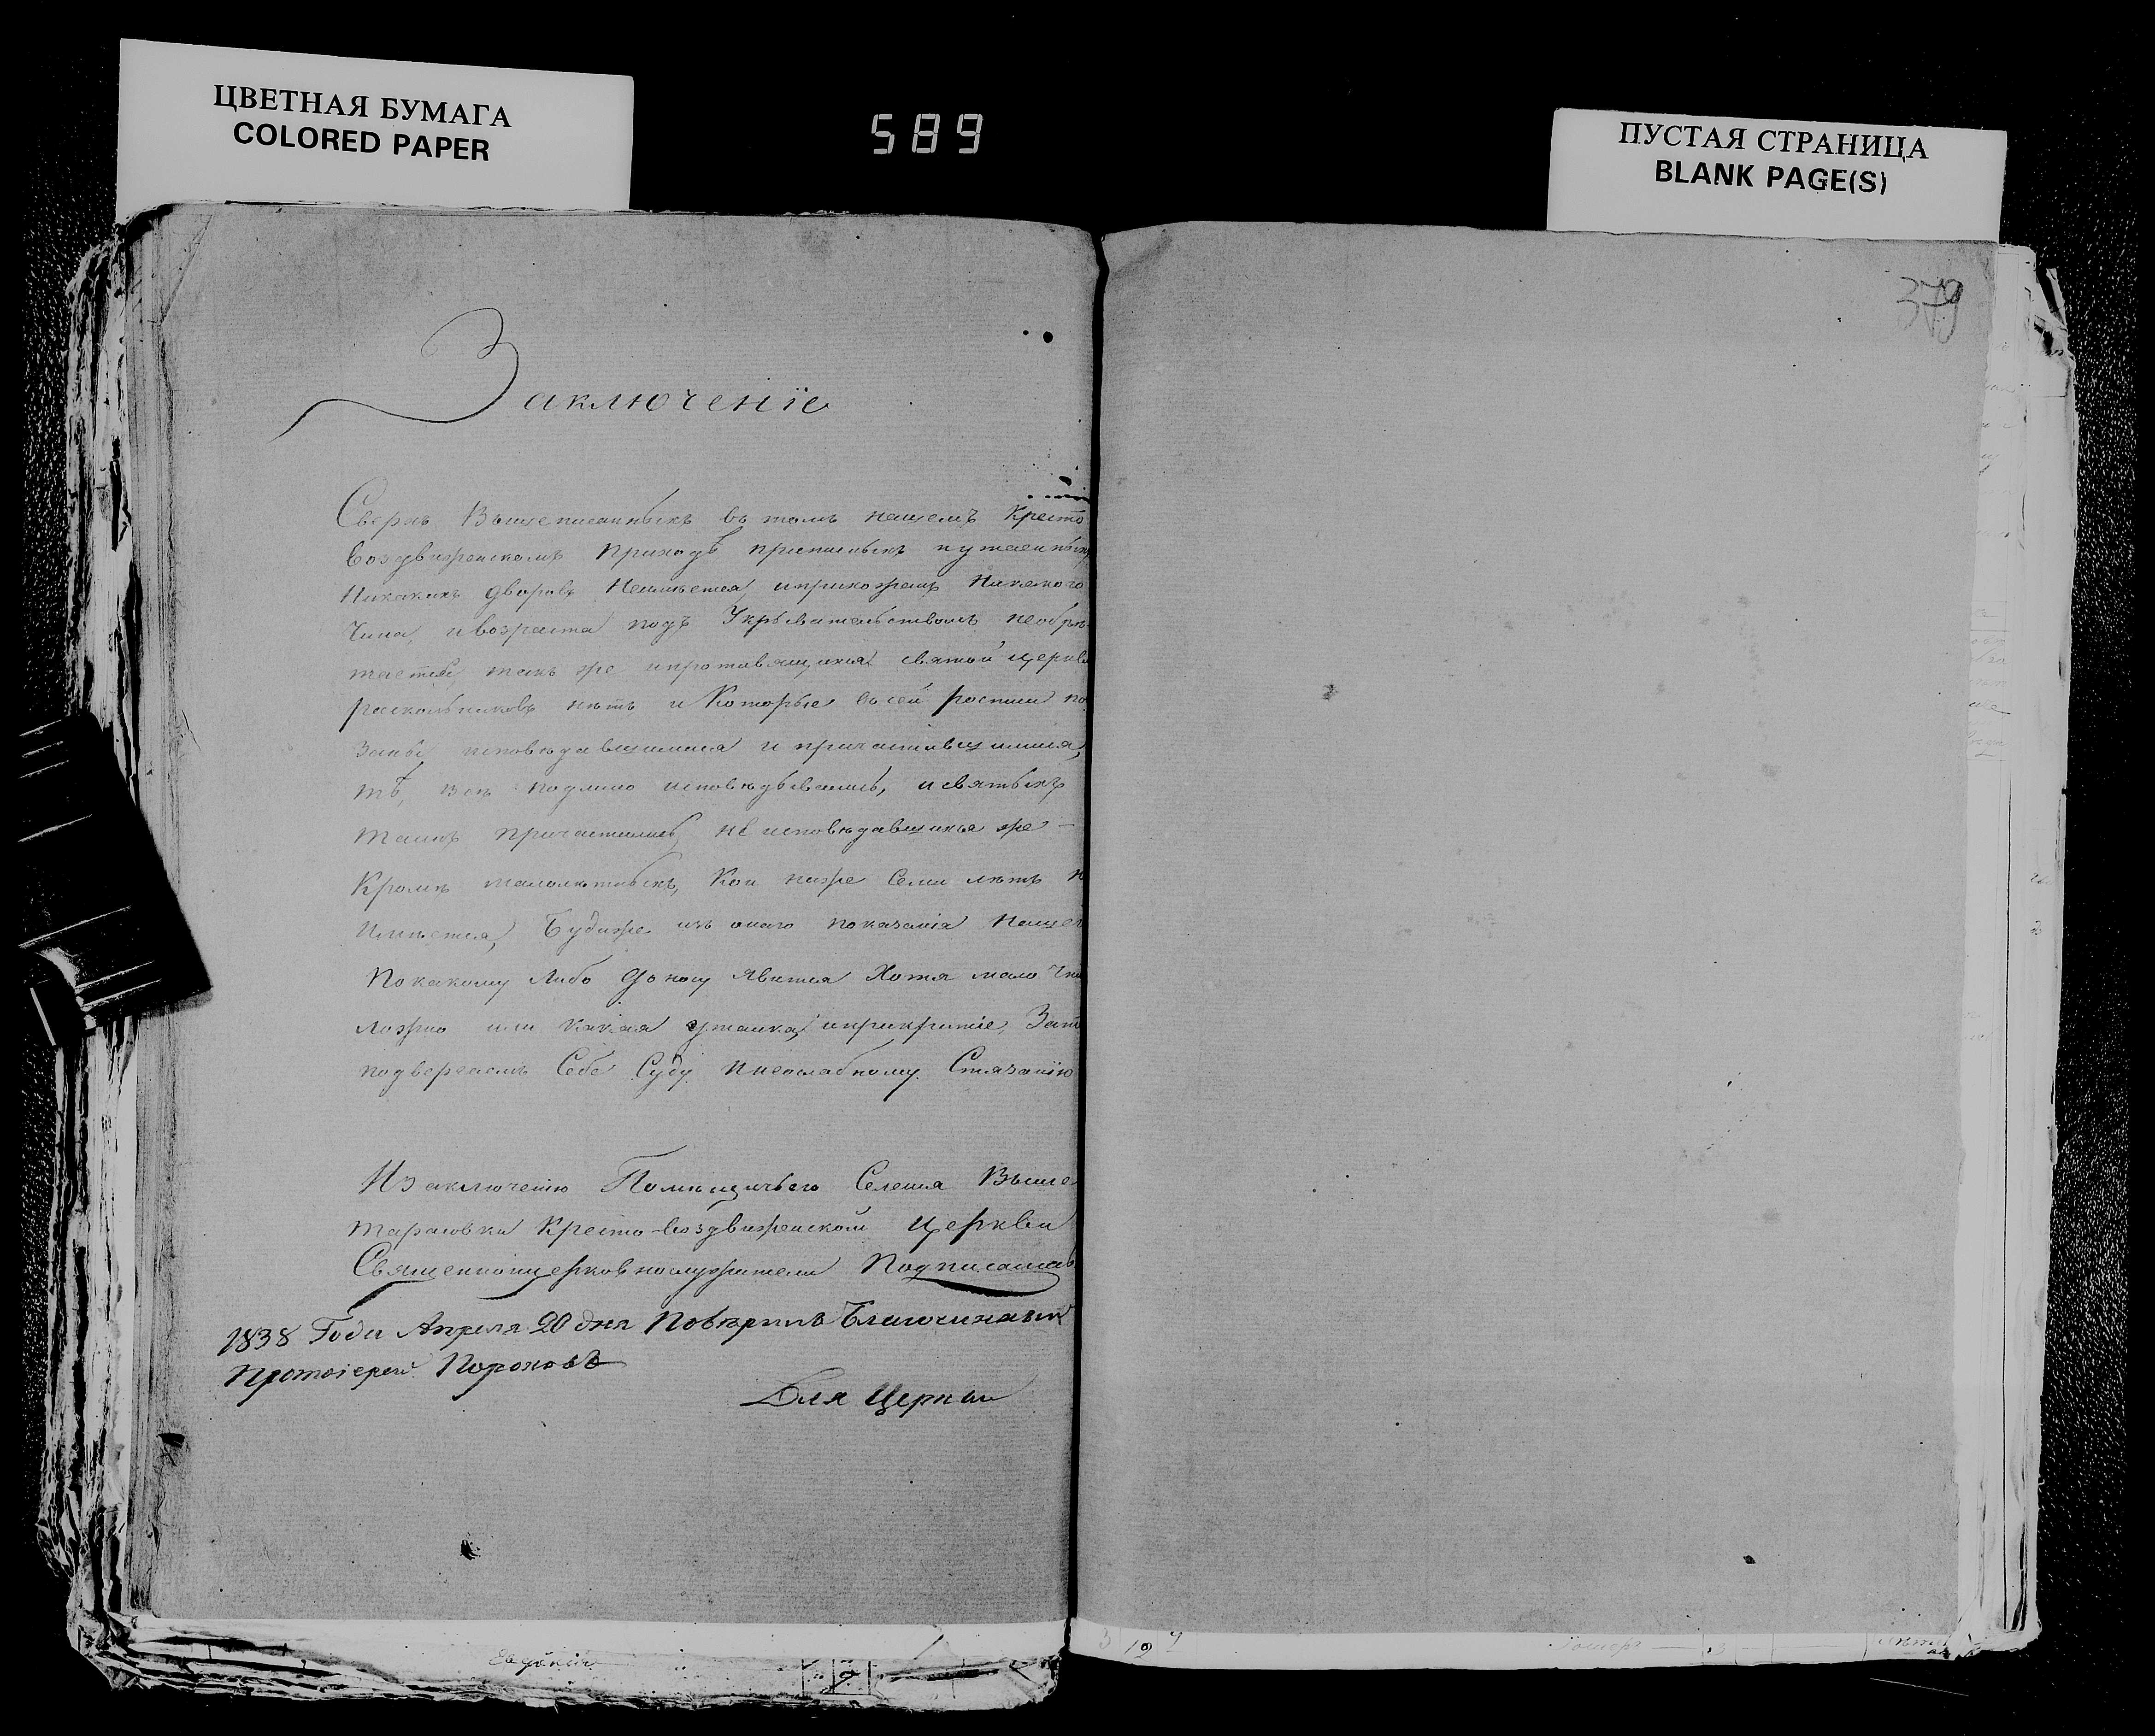 ЦВЕТНАЯ БУМАГА
COLORED PAPER
589
ПУСТАЯ СТРАНИЦА
BLANK PAGE(S)
379
Заключеніе
Сверхъ Вышеписанныхъ въ томъ нашемъ Кресто
воздвиженскомъ приходѣ прописныхъ и утаенныхъ
Никакихъ дворовъ Неимѣется, и прихожанъ Никакого
Чина, и возраста подъ Укрывательствомъ необрѣ
тается, такъ же и противящихся святой церкви
раскольниковъ нѣтъ и Которые въ сей росписи по
заны исповѣдавшимися и причастившимися,
тѣ, всѣ подлино исповѣдывались, и святыхъ
таинъ причастились, не исповѣдавшихся же
Кромѣ малолѣтныхъ, Кои ниже Семи лѣтъ н
Имѣется, Будиже изъ онаго показанія Нашег
По какому Либо доносу явится Хотя мало Что
ложно или какая утаика, и прикрытіе, Зато
подвергаемъ Себе Суду и неослабному Стязанію
Изаключенію Помѣщичьего Селенія Выше
тарасовки Кресто-воздвиженской Церкви
Священноцерковнослужители Подписались
1838 Года Апреля 20 дня Повѣрилъ Благочинный
Протоіерей Пороховъ
Для Церкви